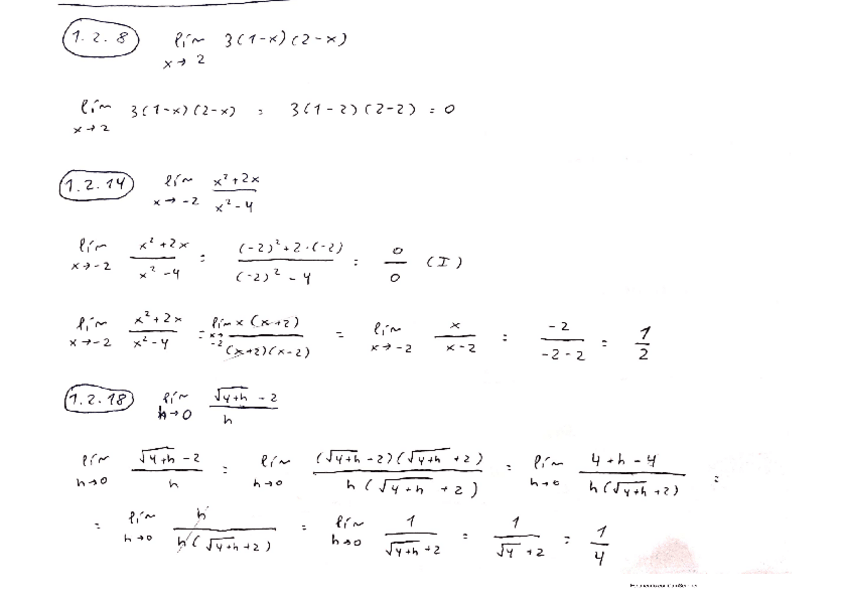 1.2.8 lím x→2 3(1-x)(2-x)
lím x→2 3(1-x)(2-x) = 3(1-2)(2-2) = 0
1.2.14 lím x→-2 (x²+2x)/(x²-4)
lím x→-2 (x²+2x)/(x²-4) = ((-2)²+2·(-2))/((-2)²-4) = 0/0 (I)
lím x→-2 (x²+2x)/(x²-4) = lím x→-2 x(x+2)/((x+2)(x-2)) = lím x→-2 x/(x-2) = -2/(-2-2) = 1/2
1.2.18 lím h→0 (√(4+h) - 2)/h
lím h→0 (√(4+h) - 2)/h = lím h→0 ((√(4+h) - 2)(√(4+h) + 2))/(h(√(4+h) + 2)) = lím h→0 (4+h-4)/(h(√(4+h) + 2)) =
= lím h→0 h/(h(√(4+h) + 2)) = lím h→0 1/(√(4+h) + 2) = 1/(√4 + 2) = 1/4